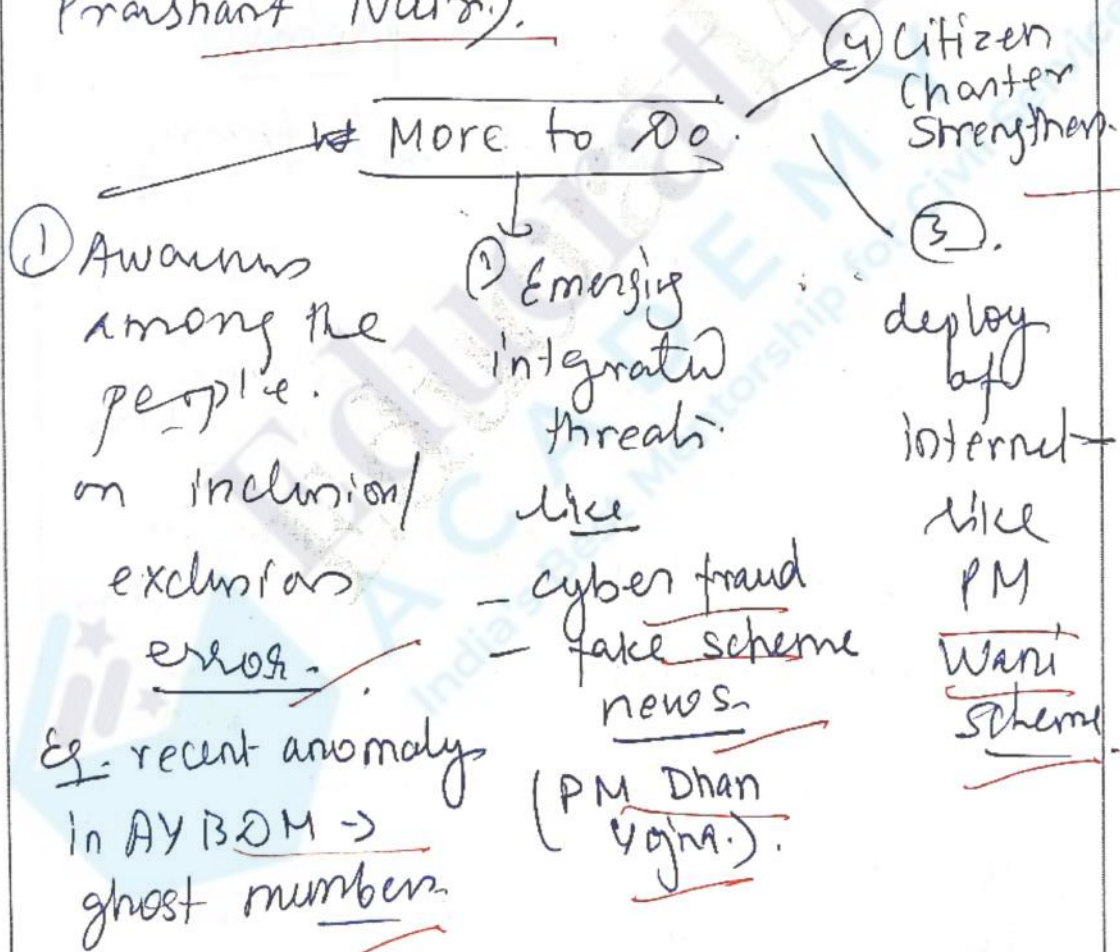 Prashant Nair).
More to Do.
① Awarnns
among the
people.
on inclusion/
exclusion
error.
Eg. recent anomaly
in AYBDM →
ghost numbers.
② Emerging
integrated
threats.
like
- cyber fraud
- fake scheme
news.
(PM Dhan
Yojna.).
③.
deploy
of
internet
like
PM
Wani
scheme.
④ Citizen
Charter
strengthen.
Education
ACADEMY
India's Best Mentorship for Civil Services